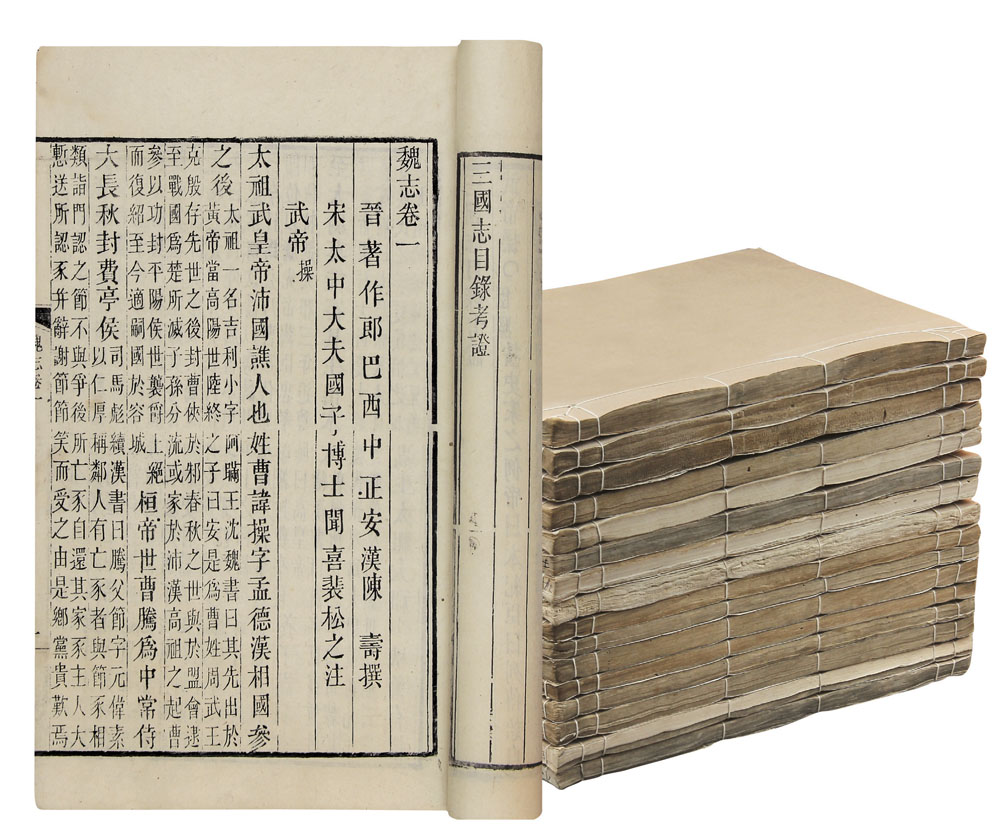 三國志目錄考證
魏志卷一
晉著作郎巴西中正安漢陳　壽撰
宋太中大夫國子博士聞喜裴松之注
武帝操
太祖武皇帝沛國譙人也姓曹諱操字孟德漢相國參
之後太祖一名吉利小字阿瞞王沈魏書曰其先出於
黃帝當高陽世陸終之子曰安是爲曹姓周武王
克殷存先世之後封曹俠於邾春秋之世與於盟會逮
至戰國爲楚所滅子孫分流或家於沛漢高祖之起曹
參以功封平陽侯世襲爵土絕
而復紹至今適嗣國於容城
桓帝世曹騰爲中常侍
大長秋封費亭侯司馬彪續漢書曰騰父節字元偉素
以仁厚稱鄰人有亡豕者與節豕相
類詣門認之節不與爭後所亡豕自還其家豕主人大
慙送所認豕并辭謝節節笑而受之由是鄉黨貴歎焉
魏志卷一
一